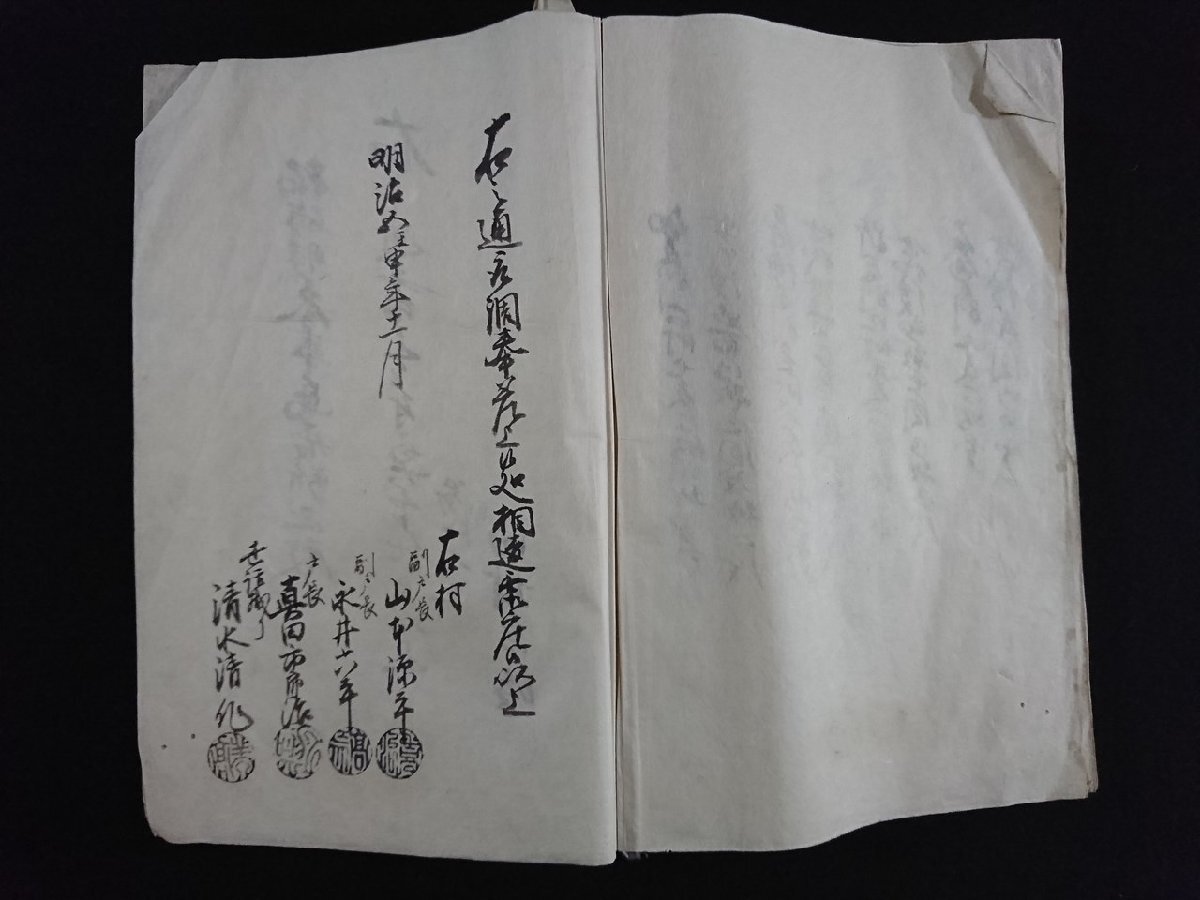 右之通取調奉差上候処相違無御座候以上
明治五壬申年十一月
右村
副戸長
山本源平
副戸長
永井六平
戸長
喜田市郎
世話掛り
清水清作